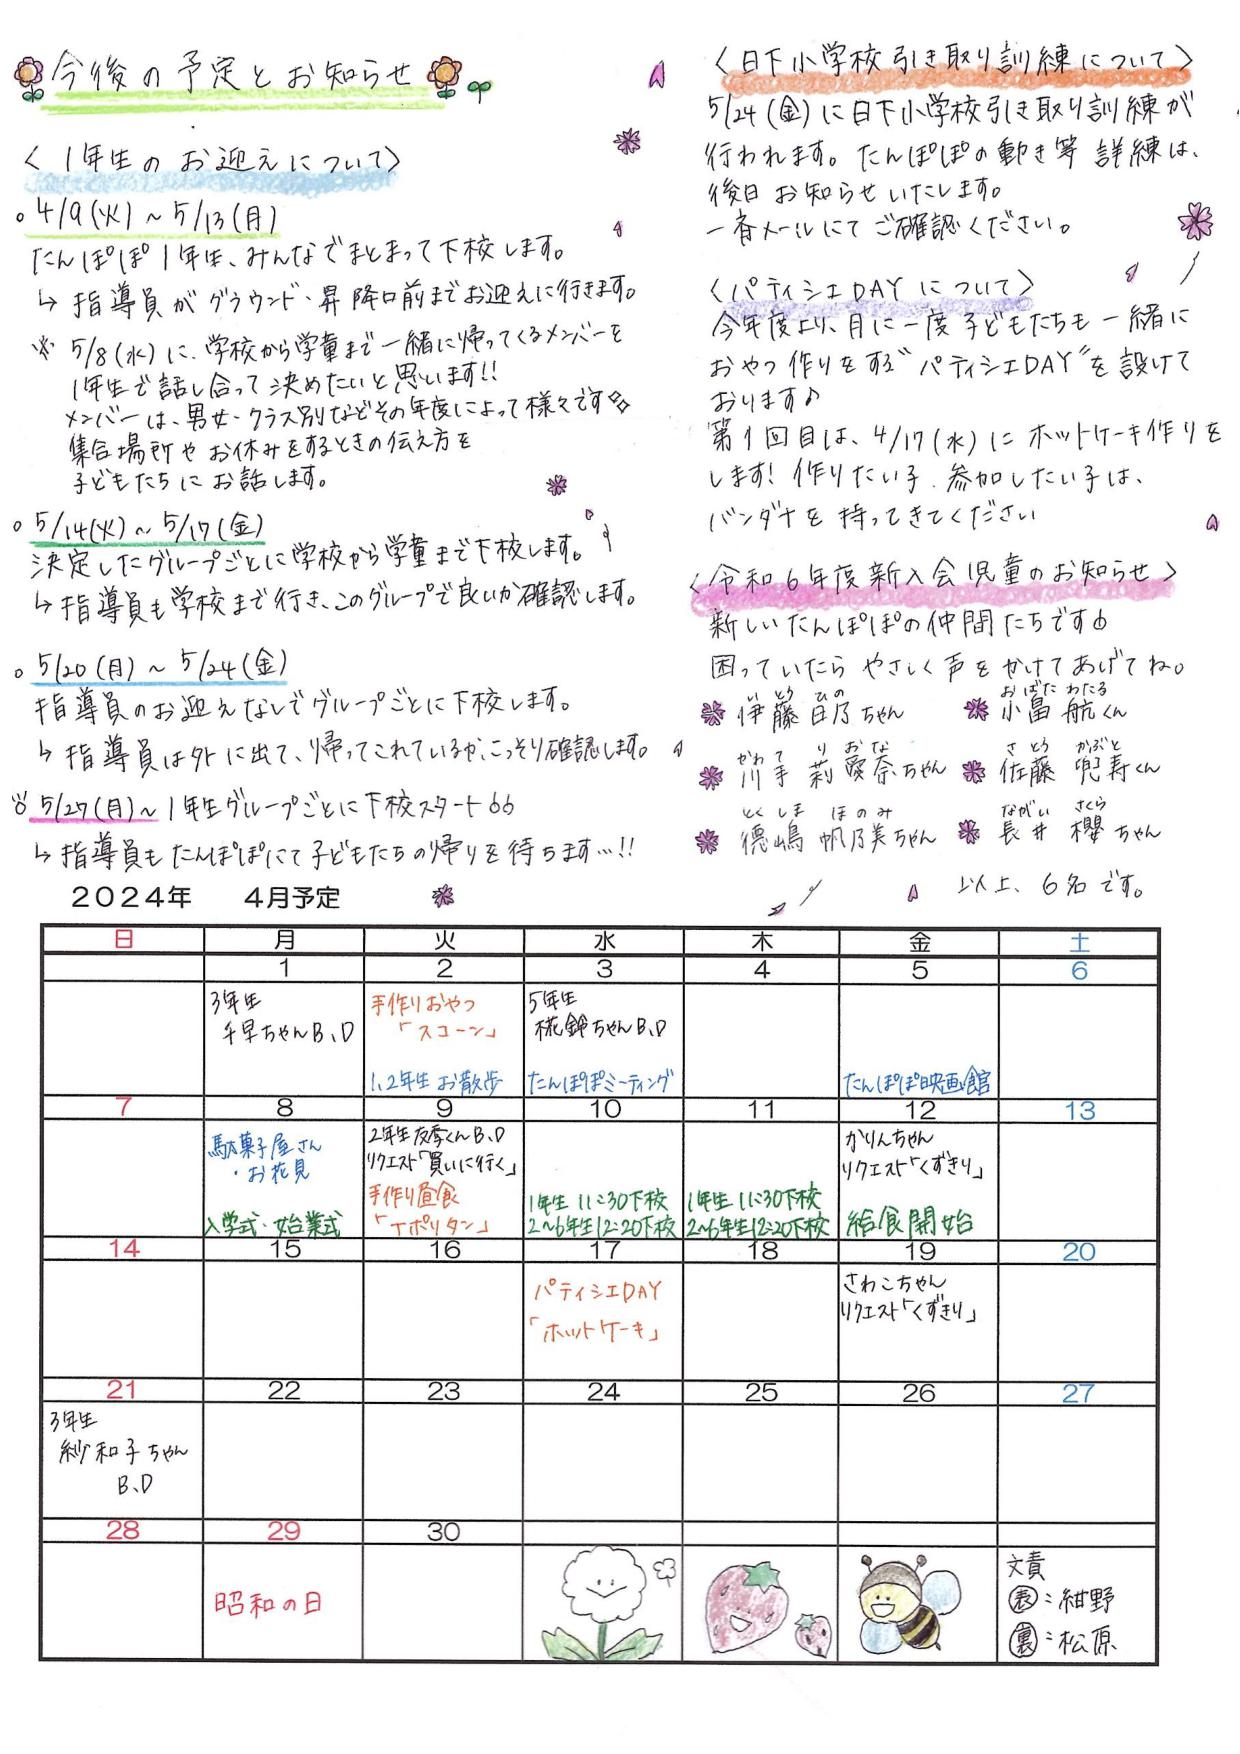 今後の予定とお知らせ
〈1年生のお迎えについて〉
。4/9(火)～5/13(月)
たんぽぽ1年生、みんなでまとまって下校します。
↳指導員がグラウンド・昇降口前までお迎えに行きます。
※5/8(水)に、学校から学童まで一緒に帰ってくるメンバーを
1年生で話し合って決めたいと思います!!
メンバーは、男女・クラス別などその年度によって様々です
集合場所やお休みをするときの伝え方を
子どもたちにお話します。
。5/14(火)～5/17(金)
決定したグループごとに学校から学童まで下校します。
↳指導員も学校まで行き、このグループで良いか確認します。
。5/20(月)～5/24(金)
指導員のお迎えなしでグループごとに下校します。
↳指導員は外に出て、帰ってこれているか、こっそり確認します。
5/27(月)～1年生グループごとに下校スタート
↳指導員もたんぽぽにて子どもたちの帰りを待ちます…!!
〈日下小学校引き取り訓練について〉
5/24(金)に日下小学校引き取り訓練が
行われます。たんぽぽの動き等詳練は、
後日お知らせいたします。
一斉メールにてご確認ください。
〈パティシエDAYについて〉
今年度より、月に一度子どもたちも一緒に
おやつ作りをする“パティシエDAY”を設けて
おります♪
第1回目は、4/17(水)にホットケーキ作りを
します!作りたい子、参加したい子は、
バンダナを持ってきてください
〈令和6年度新入会児童のお知らせ〉
新しいたんぽぽの仲間たちです
困っていたらやさしく声をかけてあげてね。
いとう ひの おばた わたる
伊藤 日乃ちゃん 小畠 航くん
かわて りおな さとう かぶと
川手 莉愛奈ちゃん 佐藤 兜寿くん
とくしま ほのみ ながい さくら
徳嶋 帆乃美ちゃん 長井 櫻ちゃん
以上、6名です。
2024年 4月予定
日 月 火 水 木 金 土
1 2 3 4 5 6
3年生 手作りおやつ 5年生
千早ちゃんB.D 「スコーン」 椛鈴ちゃんB.D
1、2年生お散歩 たんぽぽミーティング たんぽぽ映画館
7 8 9 10 11 12 13
駄菓子屋さん 2年生友季くんB.D かりんちゃん
・お花見 リクエスト「買いに行く」 リクエスト「くずきり」
手作り昼食 1年生 11:30下校 1年生 11:30下校
入学式・始業式 「ナポリタン」 2～6年生12:20下校 2～6年生12:20下校 給食開始
14 15 16 17 18 19 20
パティシエDAY さわこちゃん
「ホットケーキ」 リクエスト「くずきり」
21 22 23 24 25 26 27
3年生
紗和子ちゃん
B.D
28 29 30
昭和の日
文責
表：紺野
裏：松原